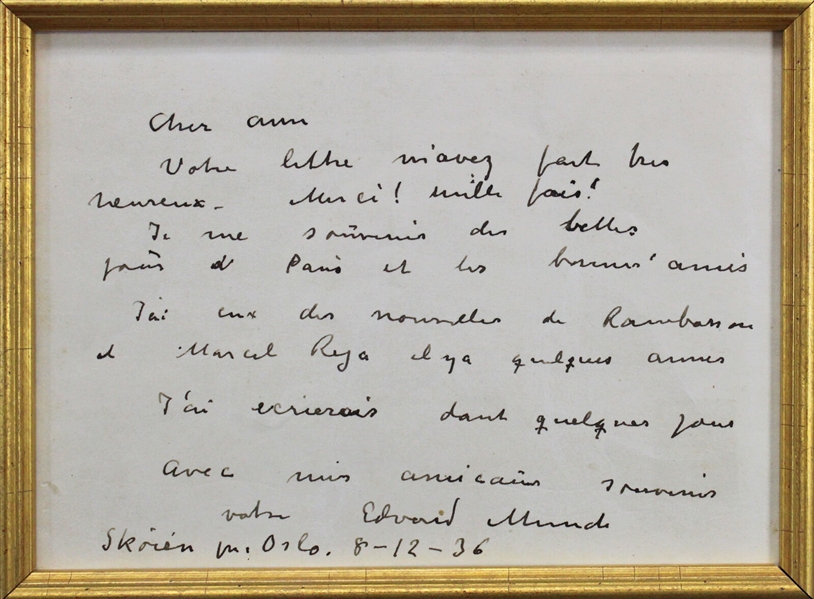 Cher ami
Votre lettre m'avez fait tres
heureux. Merci! mille fois!
Je me souvenis des belles
jours d Paris et les bonnes amis
J'ai eux des nouvelles de Rambosson
et Marcel Reja il ya quelques annes
J'ai ecrierais dant quelques jours
Avec mis amicaux souvenirs
votre Edvard Munch
Skøien pr. Oslo. 8-12-36